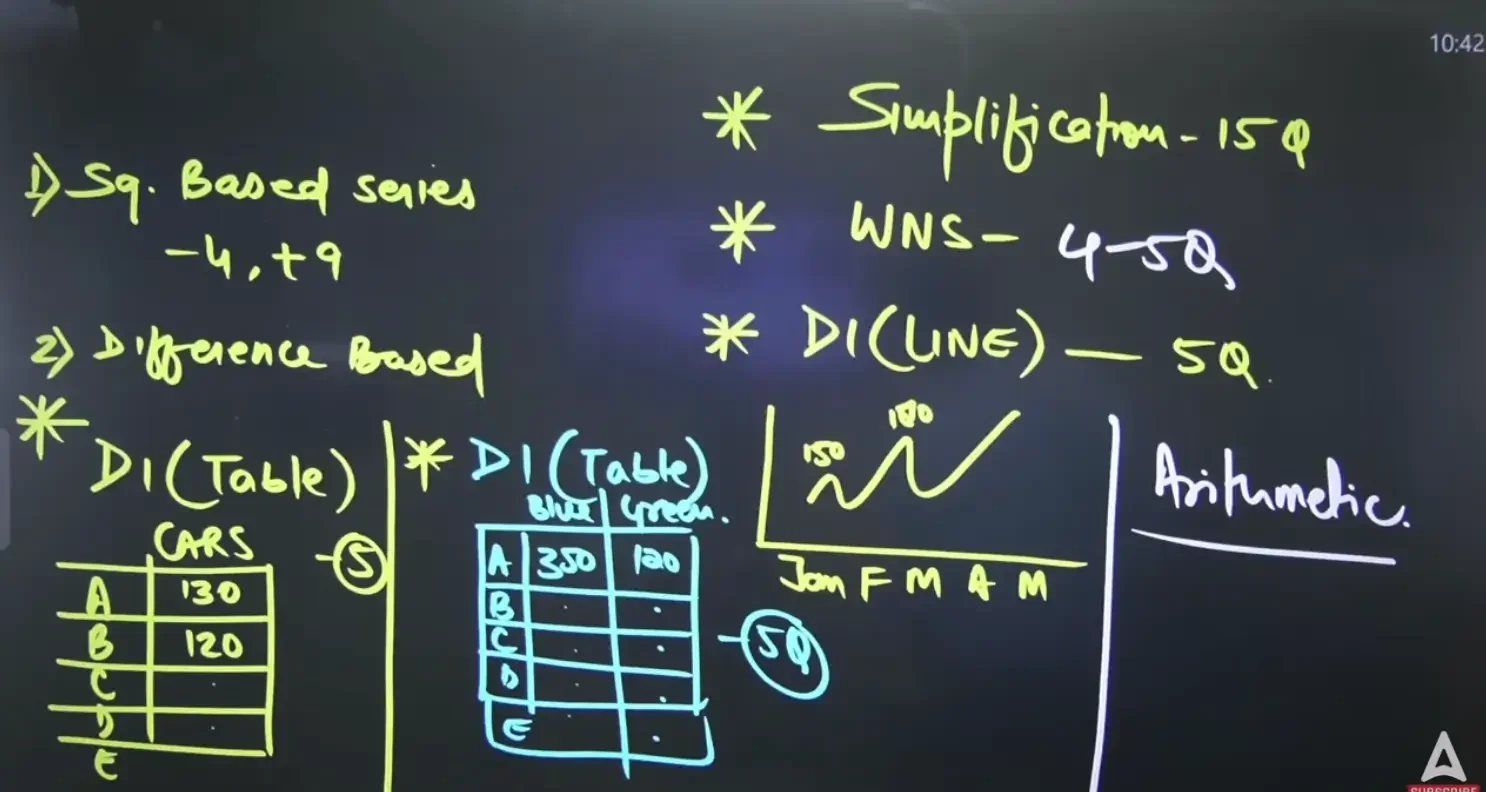 10:42
* Simplification - 15Q
* WNS - 4-5Q
* DI (LINE) — 5Q.
1) Sq. Based series
-4, +9
2) Difference Based
* DI (Table)
CARS
A 130
B 120
C .
D .
E
- 5
* DI (Table)
Blue Green.
A 350 120
B . .
C . .
D . .
E . .
- 5Q
150 180
Jan F M A M
Arithmetic.
SUBSCRIBE